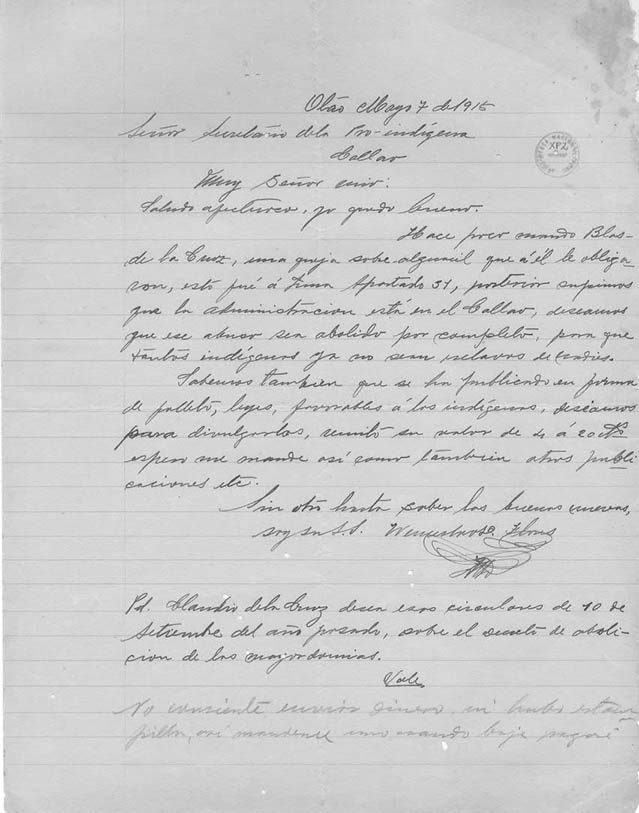 Otao Mayo 7 de 1915
Señor Secretario de la Pro-indígena
Callao
Muy Señor mio:
Saludo afectuoso, yo quedo bueno.
Hace poco mando Blas
de la Cruz, una queja sobre alguacil que á él le obliga
ron, esto fué á Lima Apartado 31, posterior supimos
que la administracion está en el Callao, deseamos
que ese abuso sea abolido por completo, para que
tantos indígenas ya no sean esclavos de nadies.
Sabemos tambien que se ha publicado en forma
de folleto, leyes, favorables á los indígenas, deseamos
para divulgarlos, remito su valor de 4 á 20 cts
espero me mande asi como tambien otros publi
caciones etc.
Sin otro hasta saber las buenas nuevas,
soy su S.S. Wenceslao Flores
Pd. Claudio de la Cruz desea esos circulares de 10 de
Setiembre del año pasado, sobre el decreto de aboli
cion de las mayordomias.
Vale
No consiente enviar dinero, ni hubo estam
pilla, asi mandeme uno cuando baje pagaré